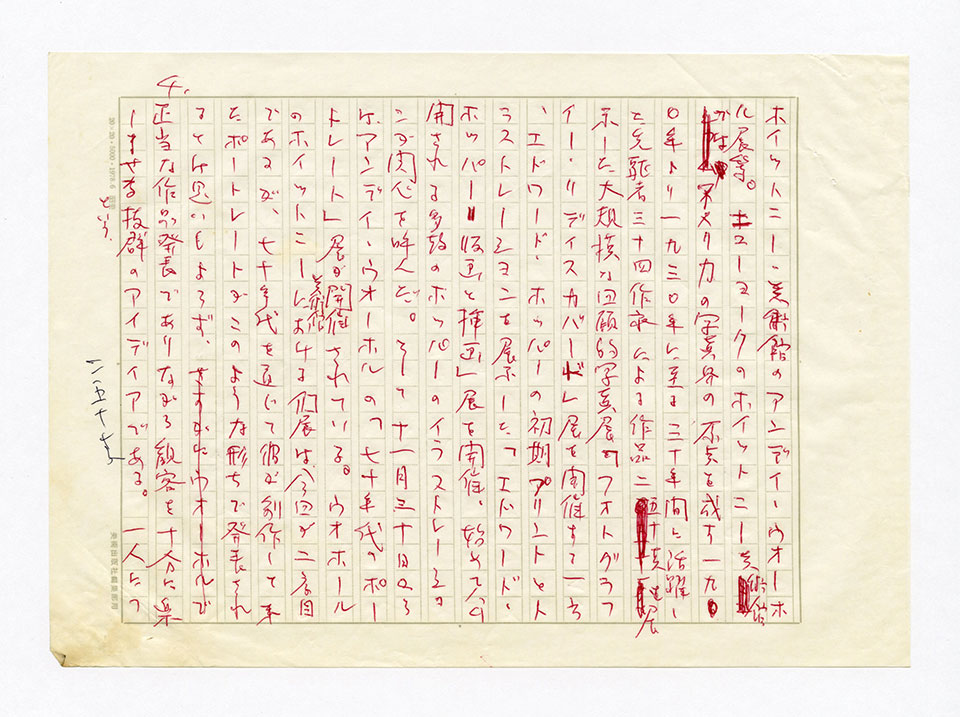 4.
ホイットニー・美術館のアンディ・ウオーホ
ル展等。ニューヨークのホイットニー美術館
がは アメリカの写真界の原点を成す一九〇
〇年より一九三〇年に至る三十年間に活躍し
た先駆者三十四作家による作品二百五十点を展
示した大規模な回顧的写真展「フォトグラフ
ィー・リディスカバード」展を開催する一方
、エドワード・ホッパーの初期プリントとイ
ラストレーションを展示した「エドワード・
ホッパー 版画と挿画」展を開催、始めて公
開される多数のホッパーのイラストレーショ
ンが関心を呼んだ。そして十一月二十日から
は、アンディ・ウオーホルの「七十年代のポー
トレート」展が開催されている。ウオホール
のホイットニー美術館における個展は今回が二度目
であるが、七十年代を通じて彼が制作して来
たポートレートがこのような形ちで発表され
るとは思いもよらず、さすがにウオーホルで
正当な作品発表でありながら観客を十分に楽
しませる抜群のアイディアである。一人につ
という
二・五十
20×20=400
美術出版社編集部用